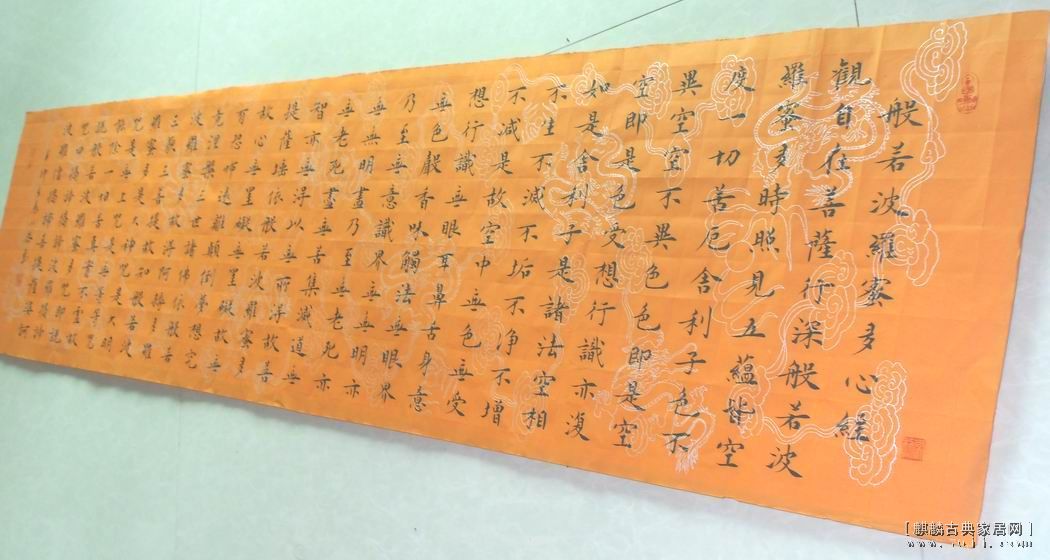 般若波羅蜜多心経
觀自在菩薩行深般若波
羅蜜多時照見五蘊皆空
度一切苦厄舍利子色不
異空空不異色色即是空
空即是色受想行識亦復
如是舍利子是諸法空相
不生不滅不垢不净不增
不減是故空中無色無受
想行識無眼耳鼻舌身意
無色聲香味觸法無眼界
乃至無意識界無無明亦
無無明盡乃至無老死亦
無老死盡無苦集滅道無
智亦無得以無所得故菩
提薩埵依般若波羅蜜多
故心無罣礙無罣礙故無
有恐怖遠離顛倒夢想究
竟涅槃三世諸佛依般若
波羅蜜多故得阿耨多羅
三藐三菩提故知般若波
羅蜜多是大神咒是大明
咒是無上咒是無等等咒
能除一切苦真實不虛故
說般若波羅蜜多咒即說
咒曰揭諦揭諦波羅揭諦
波羅僧揭諦菩提
[麒麟古典家居网]